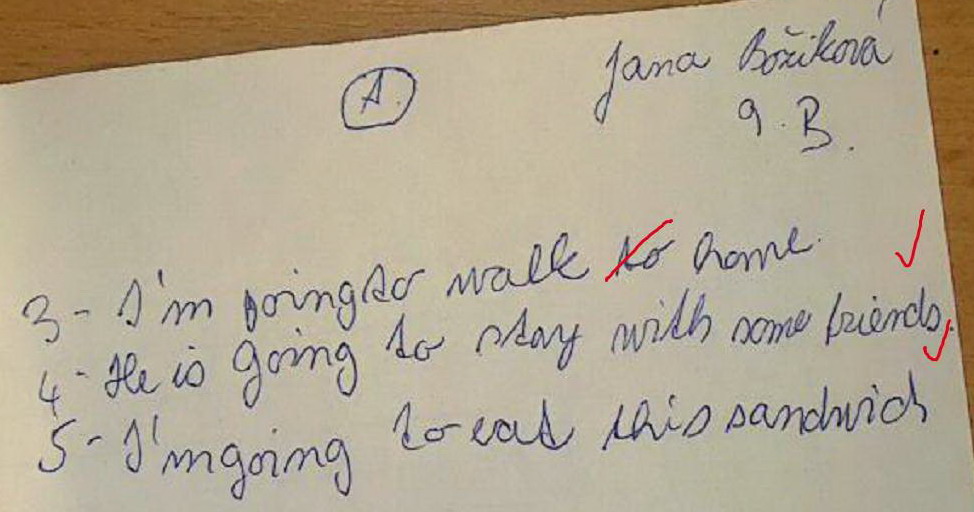 A.
Jana Božiková
9.B.
3- I'm going to walk to home.
4- He is going to stay with some friends.
5- I'm going to eat this sandwich